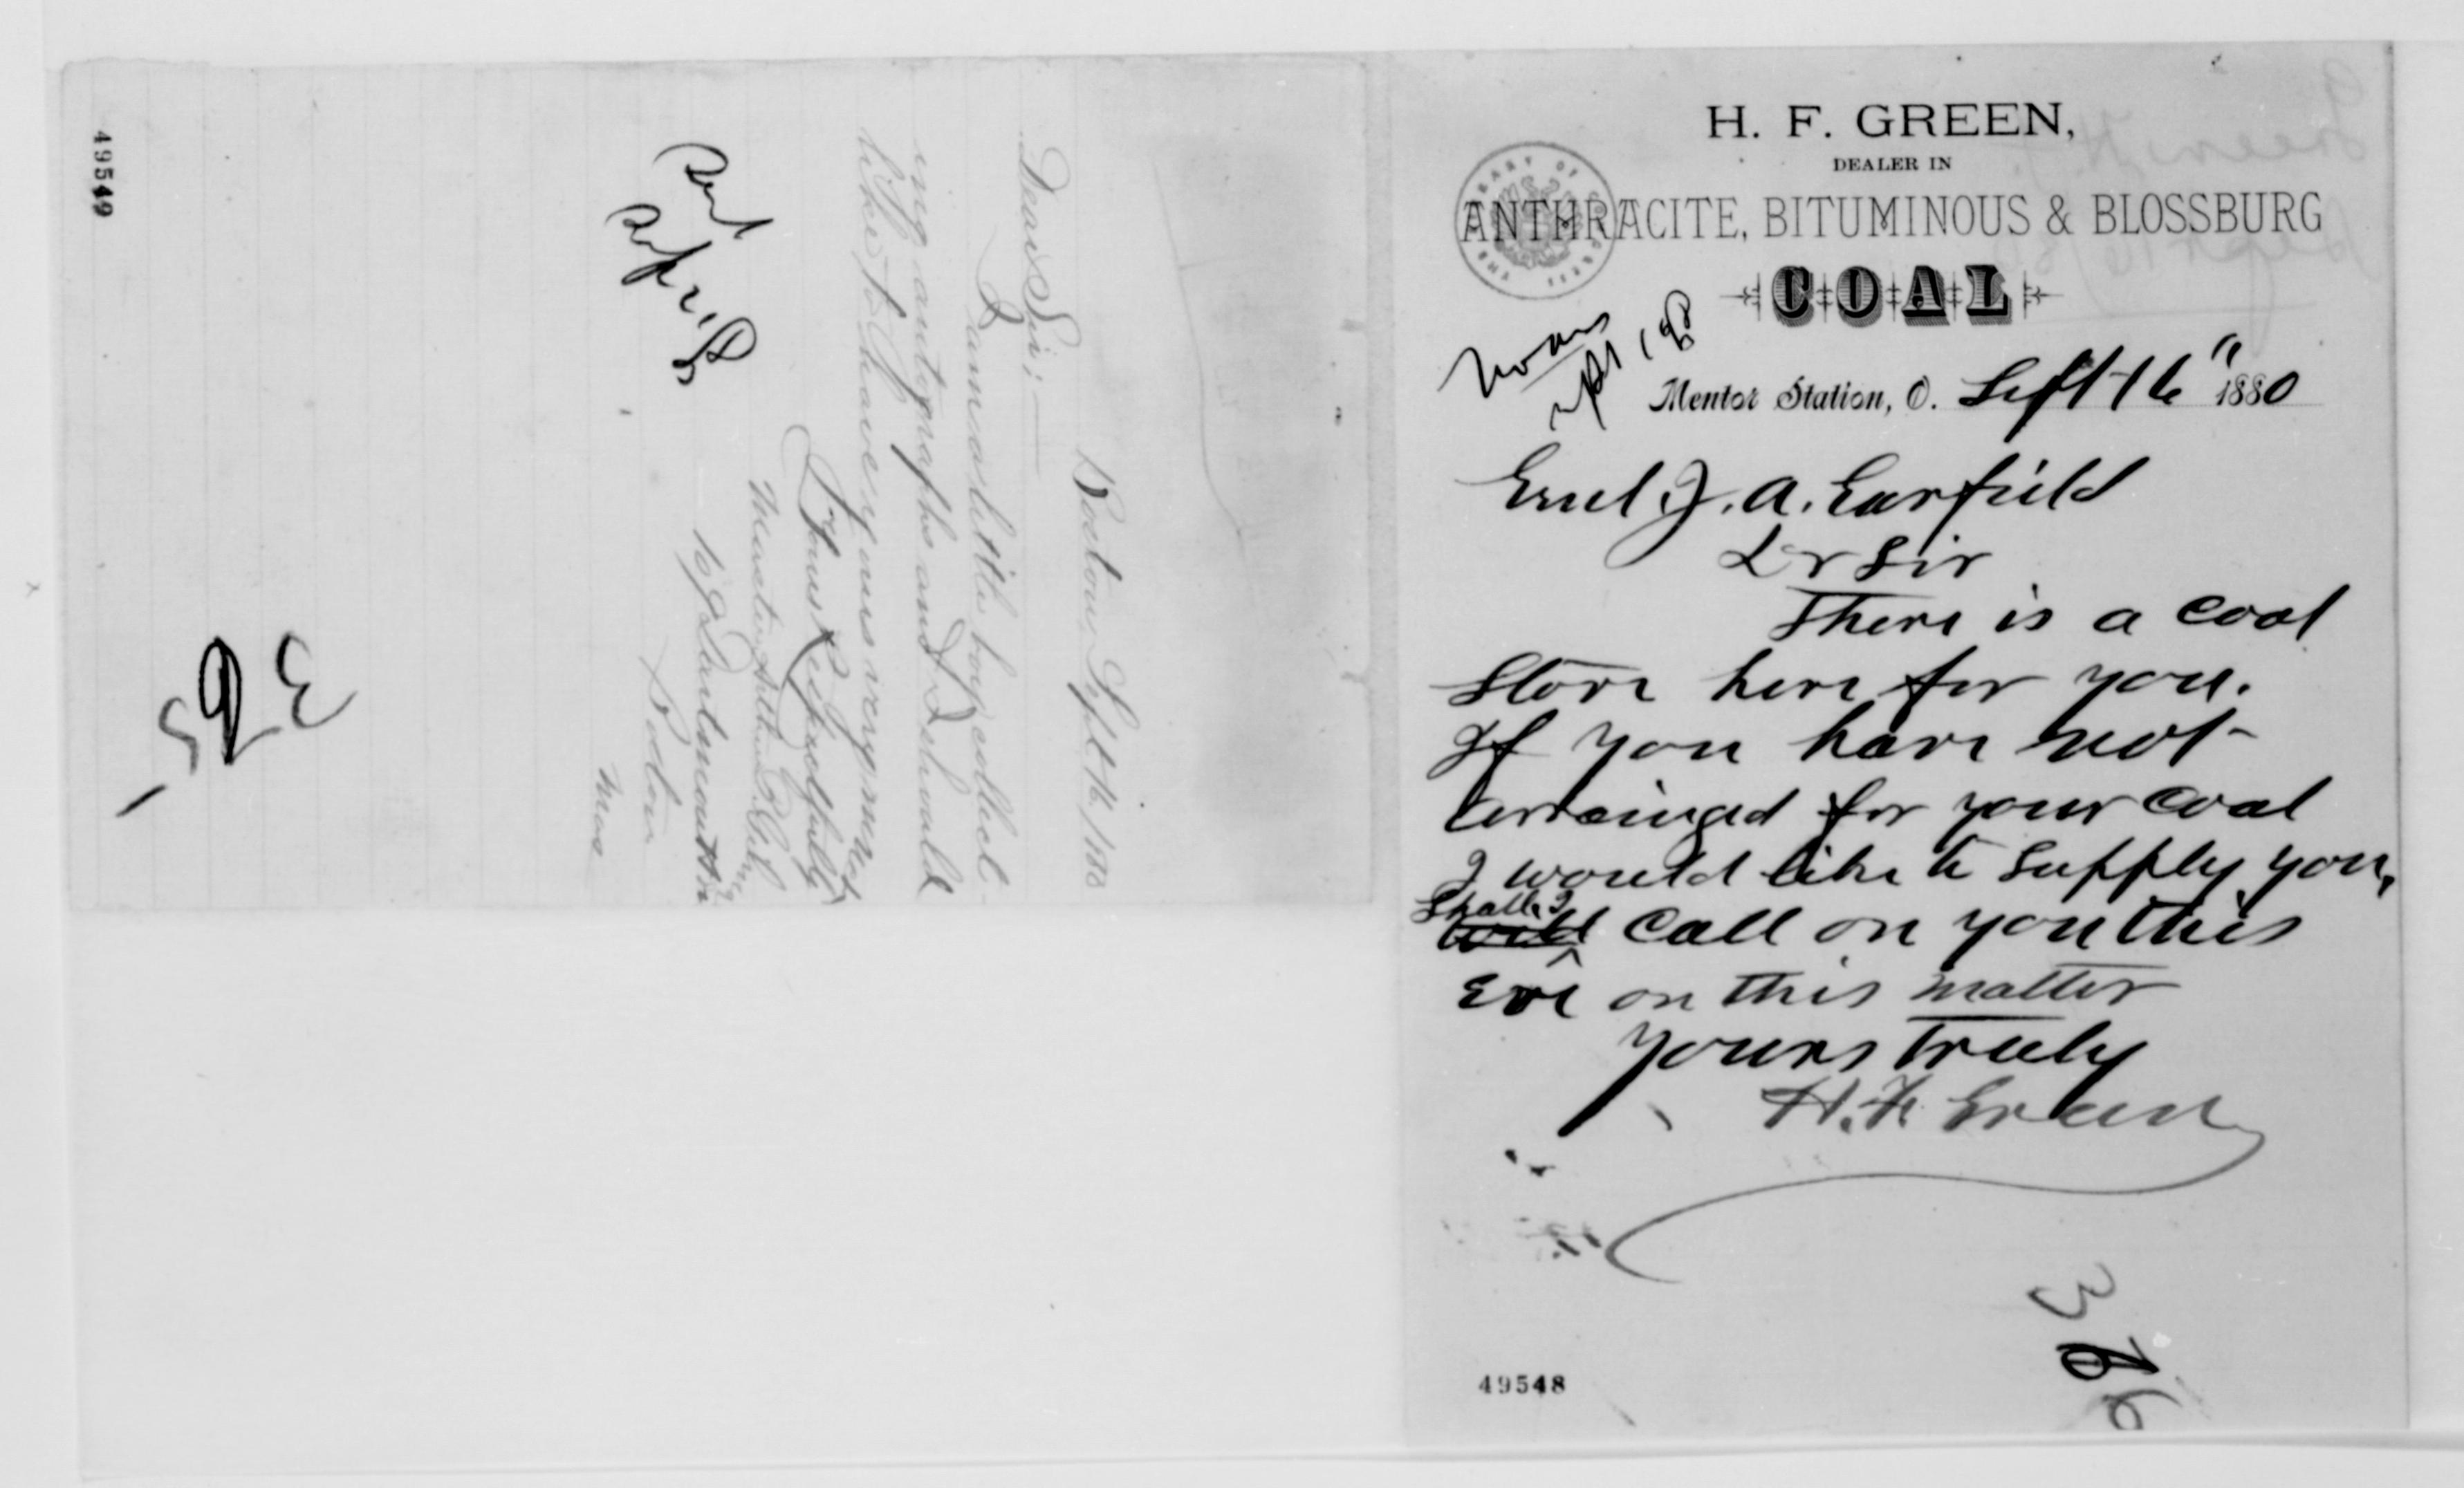 49549
Boston Sept. 16, 1880
Dear Sir:—
I am a little boy collect-
ing autographs and I should
like to have yours very much
Yours Respectfully
Master Arthur
69 Dartmouth St
Boston
Mass
Sept 21
H. F. GREEN,
DEALER IN
ANTHRACITE, BITUMINOUS & BLOSSBURG
COAL
Mentor Station, O. Sept 16" 1880
Genl. J. A. Garfield
Dr Sir
There is a Coal
Stove here for you.
If you have not
arranged for your Coal
I would like to supply you,
Shall I
will call on you this
Eve on this matter
Yours Truly
H. F. Green
49548